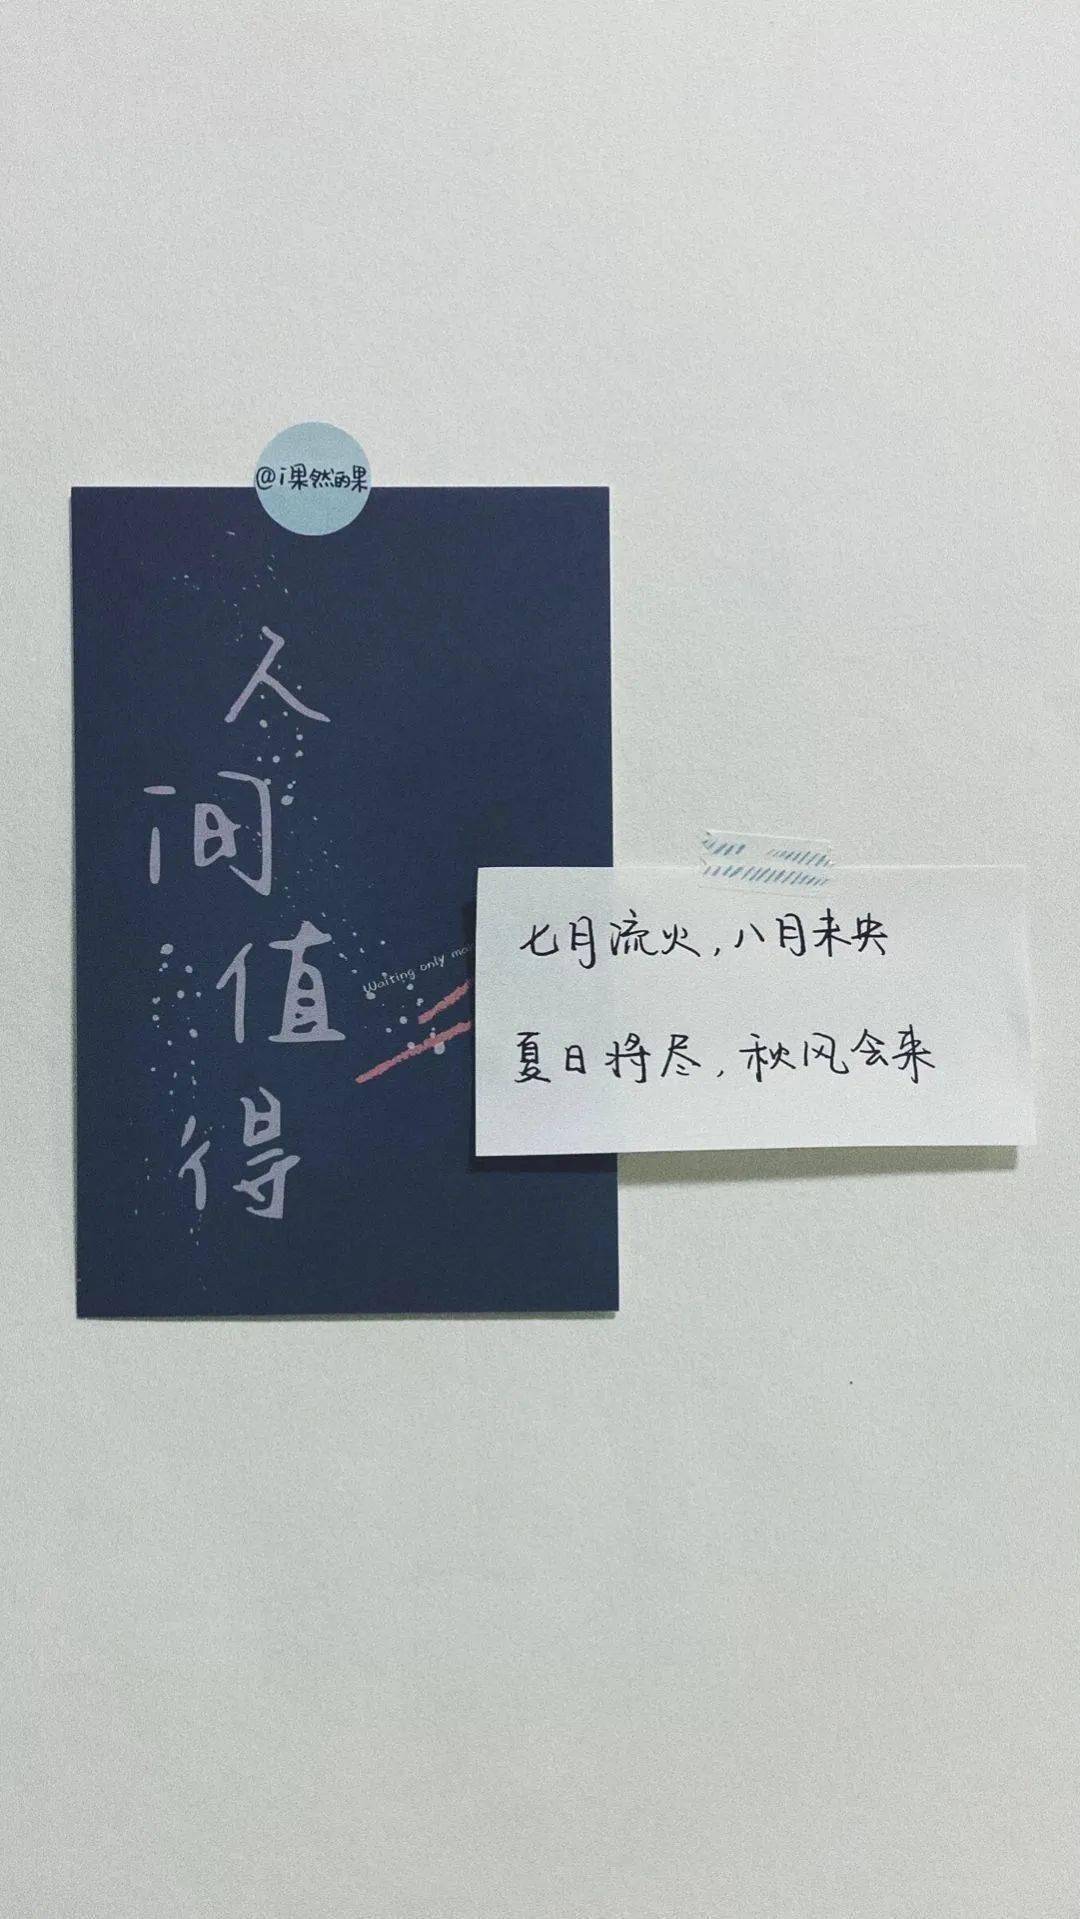 @i果然的果
人
间
值
得
Waiting only
七月流火，八月未央
夏日将尽，秋风会来